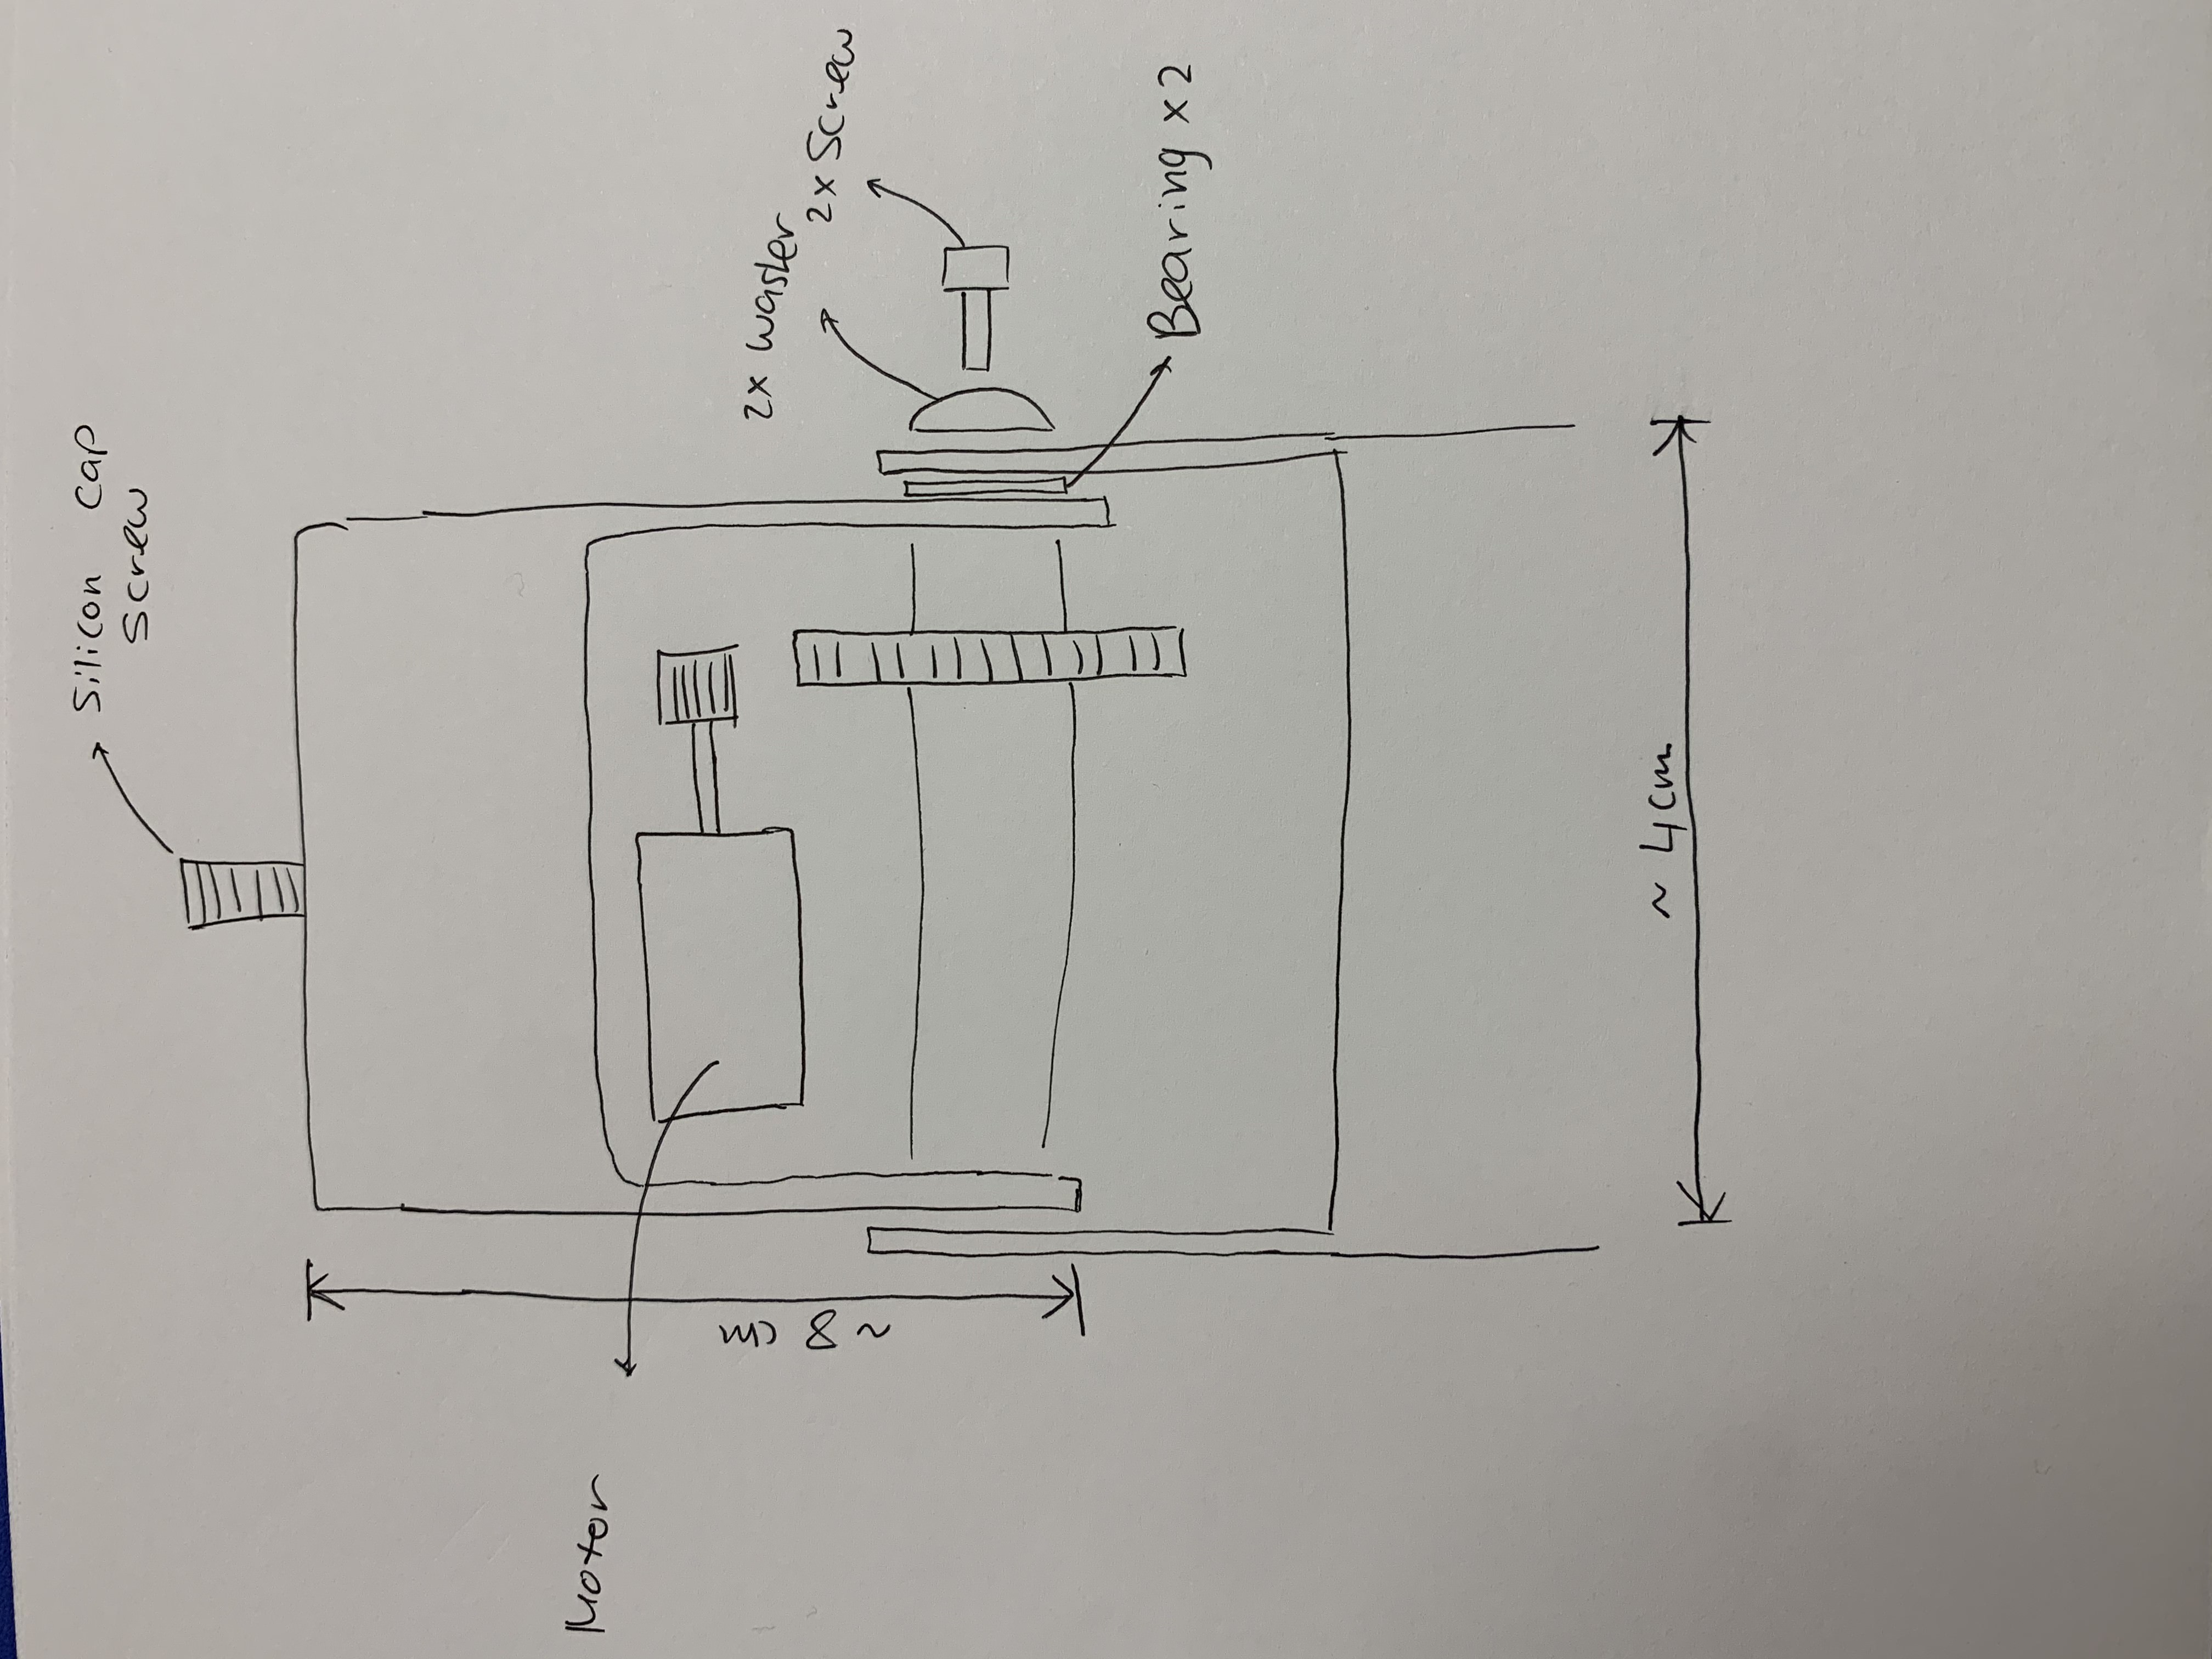 Silicon cap
screw
Motor
~8 cm
2x waster
2x Screw
Bearing x2
~ 4cm